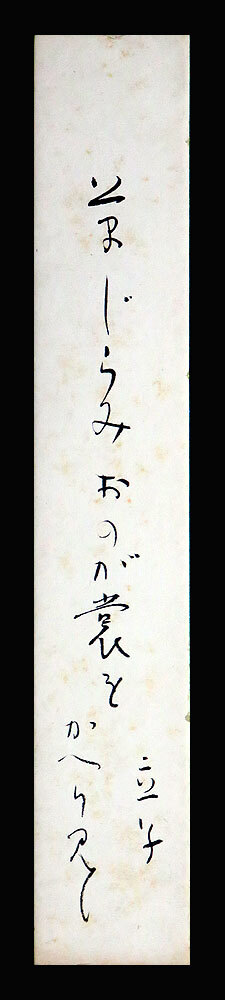 草じらみおのが裳を
かへり見し
立子